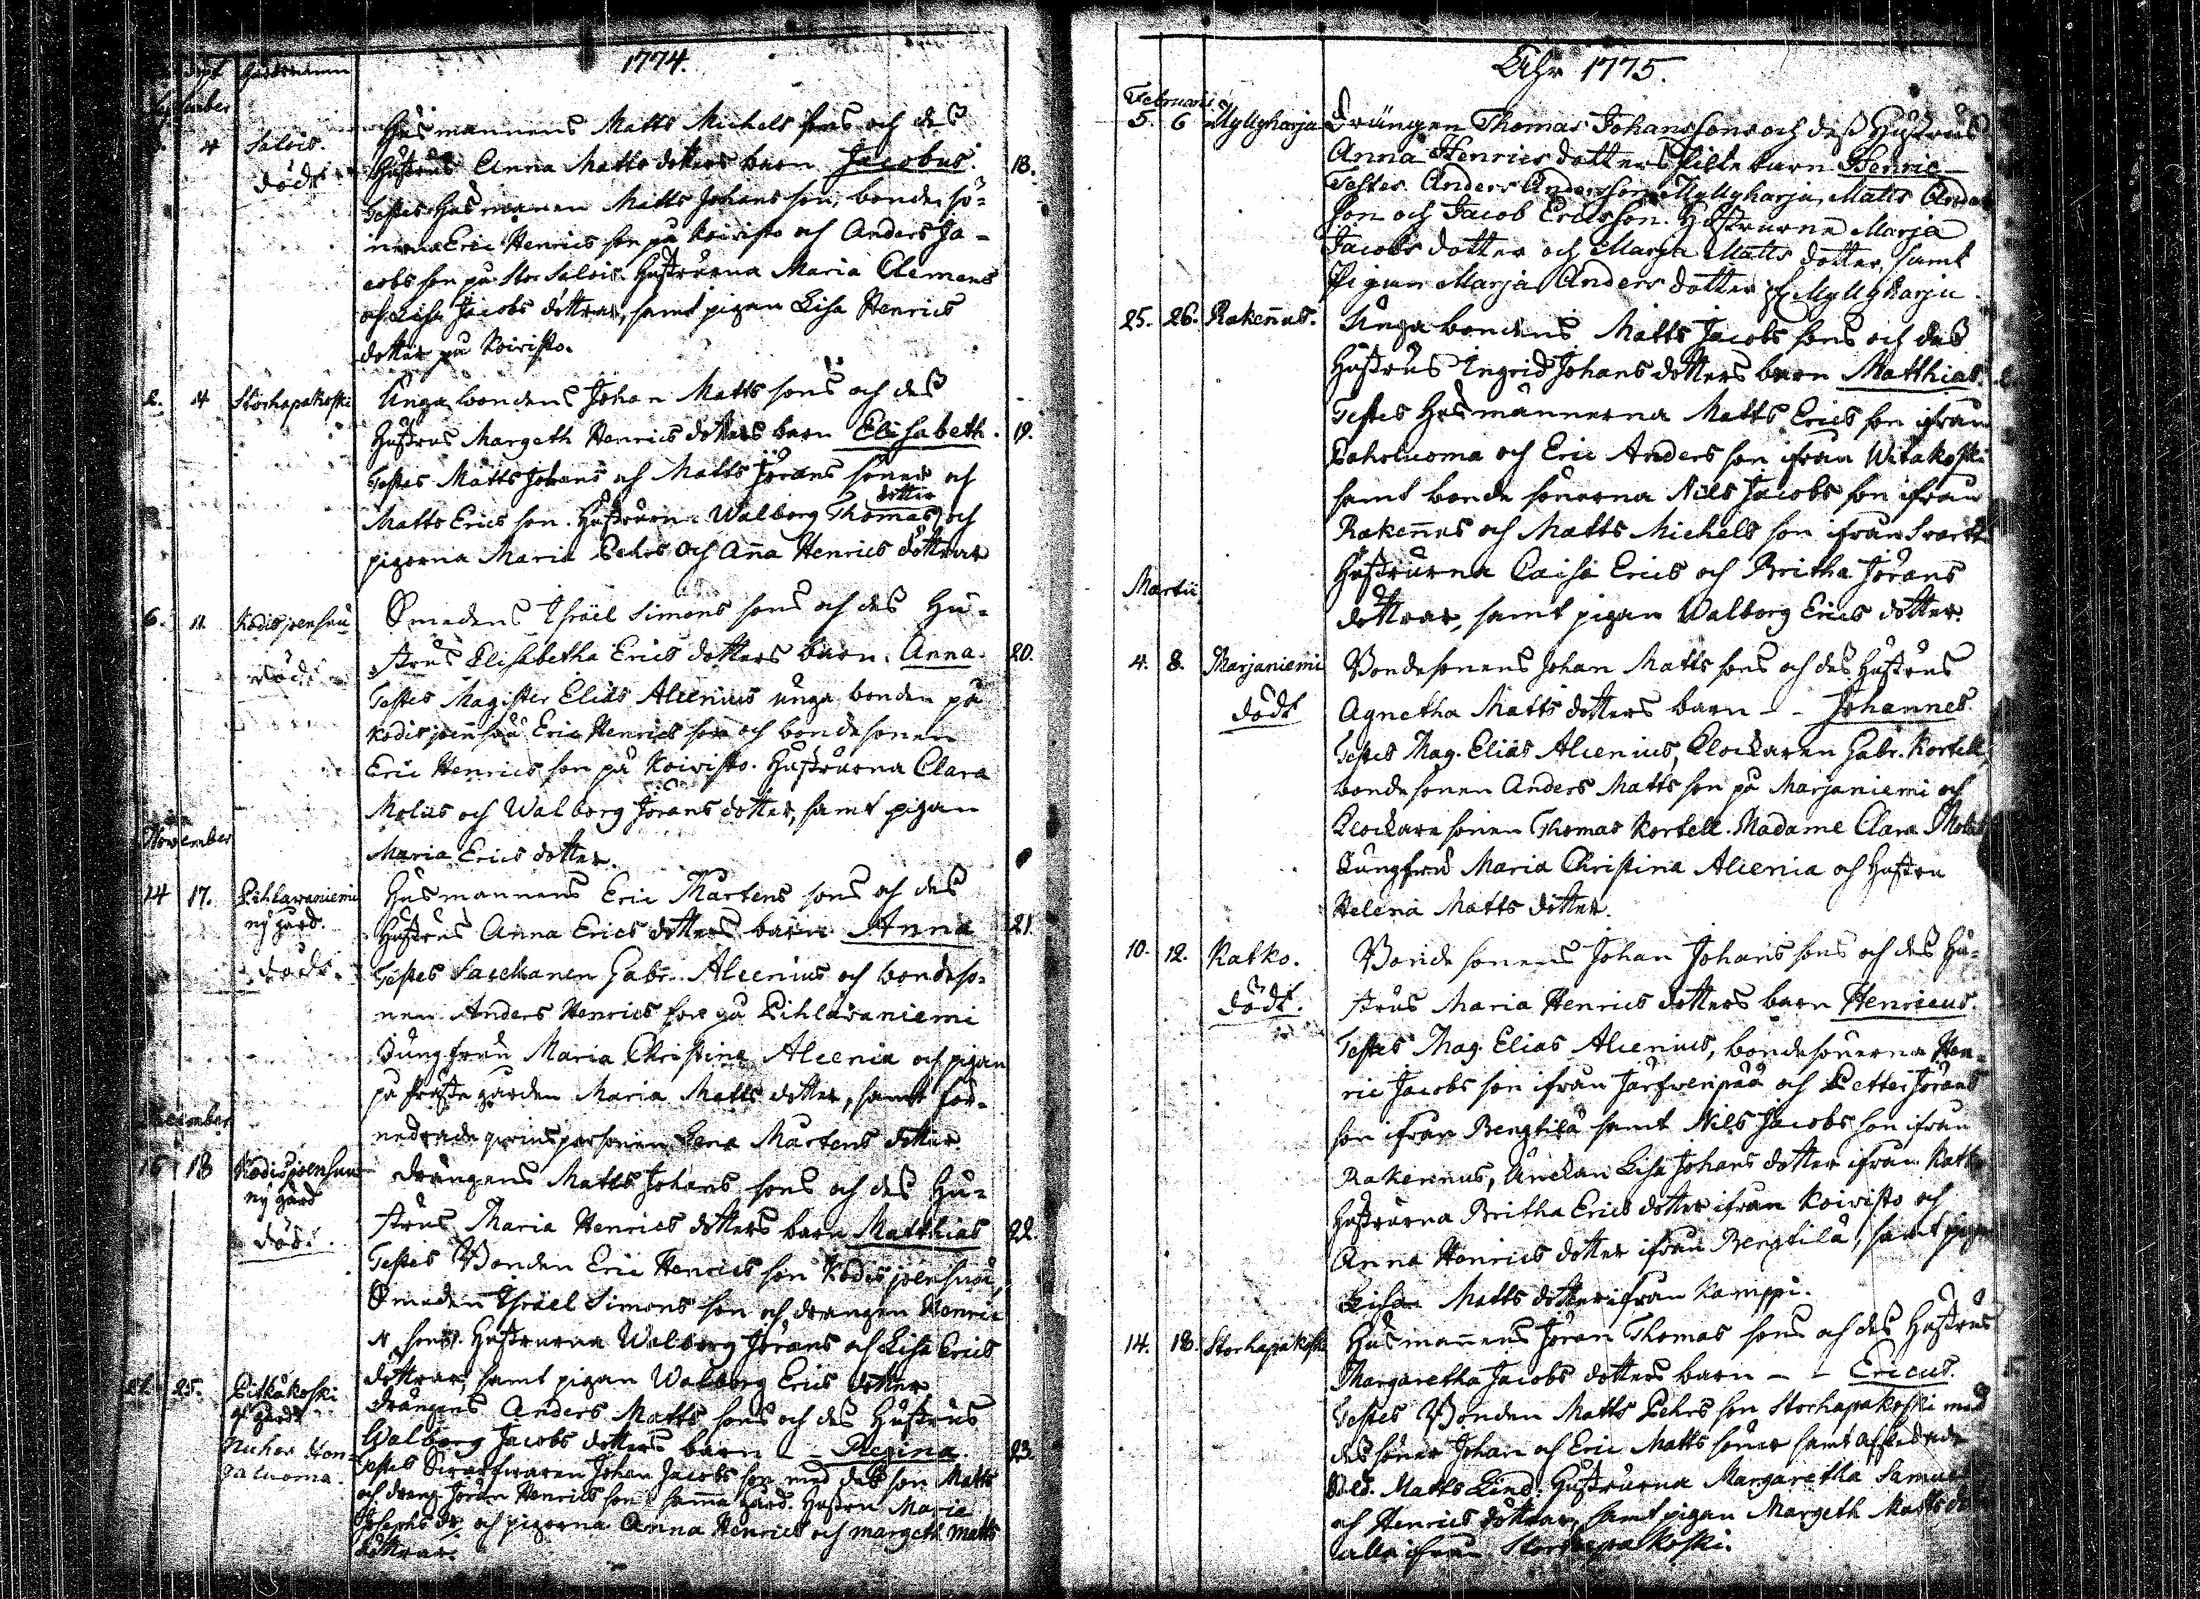 1774.
döpt Gårdsnamn
September
4 Salois. Husmannens Matts Michels sons och des
dödt Hustrus Anna Matts dotters barn Jacobus. 18.
Testes Husmannen Matts Johans son, bonde sö-
nerna Eric Henrics son på Koivisto och Anders Ja-
cobs son på Stor Salois. Hustrurna Maria Clemens
och Lisa Jacobs döttrar, samt pigan Lisa Henrics
dotter på Koivisto.
2. 4 Storhapakoski Unga bondens Johan Matts sons och des
Hustrus Margeth Henrics dotters barn Elisabeth. 19.
Testes Matts Johans och Matts Jörans söner och
Matts Erics son. Hustrun Walborg Thomas dotter och
pigorna Maria Pehrs och Aña Henrics döttrar
6. 11. Kodisjoensuu Smedens Israël Simons sons och des Hu-
dödt strus Elisabetha Erics dotters barn. Anna. 20.
Testes Magister Elias Alcenius unga bonden på
Kodisjoensuu Eric Henrics son och bondesonen
Eric Henrics son på Koivisto. Hustrurna Clara
Molius och Walborg Jörans dotter, samt pigan
Maria Erics dotter.
November
14 17. Pihlawaniemi Husmannens Eric Mårtens sons och des
ny gård. Hustrus Anna Erics dotters barn Anna 21
dödt. Testes Sacellanen Gabr. Alcenius och bondeso-
nen Anders Henrics son på Pihlawaniemi
Jungfrun Maria Christina Alcenia och pigan
på Prästegården Maria Matts dotter, samt för-
nedrade qvinspersonen Lena Mårtens dotter.
December
16 18 Kodisjoensuu Drängens Matts Johans sons och des Hu-
ny gård strus Maria Henrics dotters barn Matthias 22.
död. Testes Bonden Eric Henrics son Kodisjoensuu,
Smeden Israël Simons son och drängen Henric
N son. Hustrurna Walborg Jörans och Lisa Erics
döttrar, samt pigan Walborg Erics dotter
21. 25. Pitkäkoski Drängens Anders Matts sons och des Hustrus
gård Walborg Jacobs dotters barn - Regina. 23.
Testes Svarfwaren Johan Jacobs son med des son Matts
och dräng Jöran Henrics son i samma gård. Hustru Maria
Josephs dr. och pigorna Anna Henrics och margeth Matts
döttrar.
Åhr 1775.
Februarii
5. 6 Myllyharja Drängen Thomas Johanssons och deß Hustrus
Anna Henrics dotters Pilte barn Henric
Testes Anders Andersson Myllyharja, Matts Anders
son och Jacob Ericsson. Hustrurna Marja
Jacobs dotter och Marja Matts dotter, samt
Pigan Marja Anders dotter på Myllyharju.
25. 26. Rakeñus. Unga bondens Matts Jacobs sons och des
Hustrus Ingrid Johans dotters barn Matthias.
Testes Husmännerna Matts Erics son ifrån
Paholuoma och Eric Anders son ifrån Witakoski
samt bonde sönerna Nils Jacobs son ifrån
Rakeñus och Matts Michels son ifrån
Hustrurna Caisa Erics och Britha Jörans
döttrar, samt pigan Walborg Erics dotter.
Martii
4. 8. Marjaniemi Bondesonens Johan Matts sons och des Hustrus
dödt Agnetha Matts dotters barn - - Johannes.
Testes Mag. Elias Alcenius, Clockaren Gabr. Kortell,
bondesonen Anders Matts son på Marjaniemi och
Clockaresonen Thomas Kortell. Madame Clara Molia
Jungfru Maria Christina Alcenia och Hustru
Helena Matts dotter.
10. 12. Katko. Bonde sonens Johan Johans sons och des Hu-
dödt. strus Maria Henrics dotters barn Henricus.
Testes Mag. Elias Alcenius, bondesönerna Hen-
ric Jacobs son ifrån Jarfwenpää och Petter Jörans
son ifrån Bengtilä samt Nils Jacobs son ifrån
Rakennus, Änckan Lisa Johans dotter ifrån Katko
Hustrurna Britha Erics dotter ifrån Koivisto och
Anna Henrics dotter ifrån Bengtilä, samt pigan
Lisa Matts dotter ifrån Kamppi.
14. 18. Storhapakoski Husmañens Jöran Thomas sons och des Hustrus
Margaretha Jacobs dotters barn - - Ericus.
Testes Bonden Matts Pehrs son Storhapakoski med
des söner Johan och Eric Matts söner samt afskedade
Sold. Matts Lind. Hustrurna Margaretha Samuels
och Henrics döttrar, samt pigan Margeth Matts dotter
alla ifrån Storhapakoski.